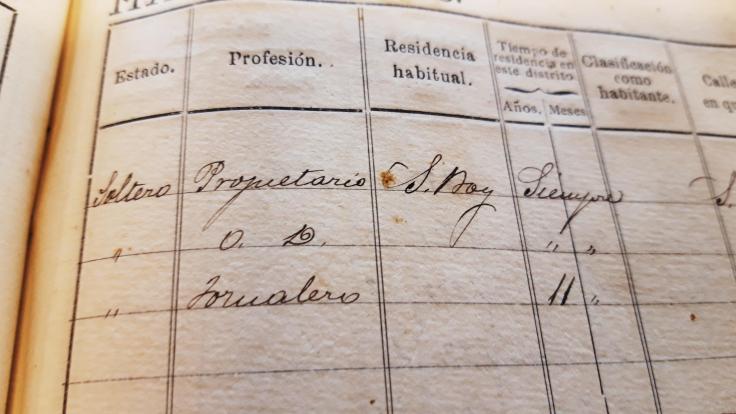 Estado. Profesión. Residencia habitual. Tiempo de residencia en este distrito Años. Meses Clasificación como habitante. Calle en qu
Soltero Propietario S. Boy Siempre S.
" O. D. " "
" Jornalero 11 "